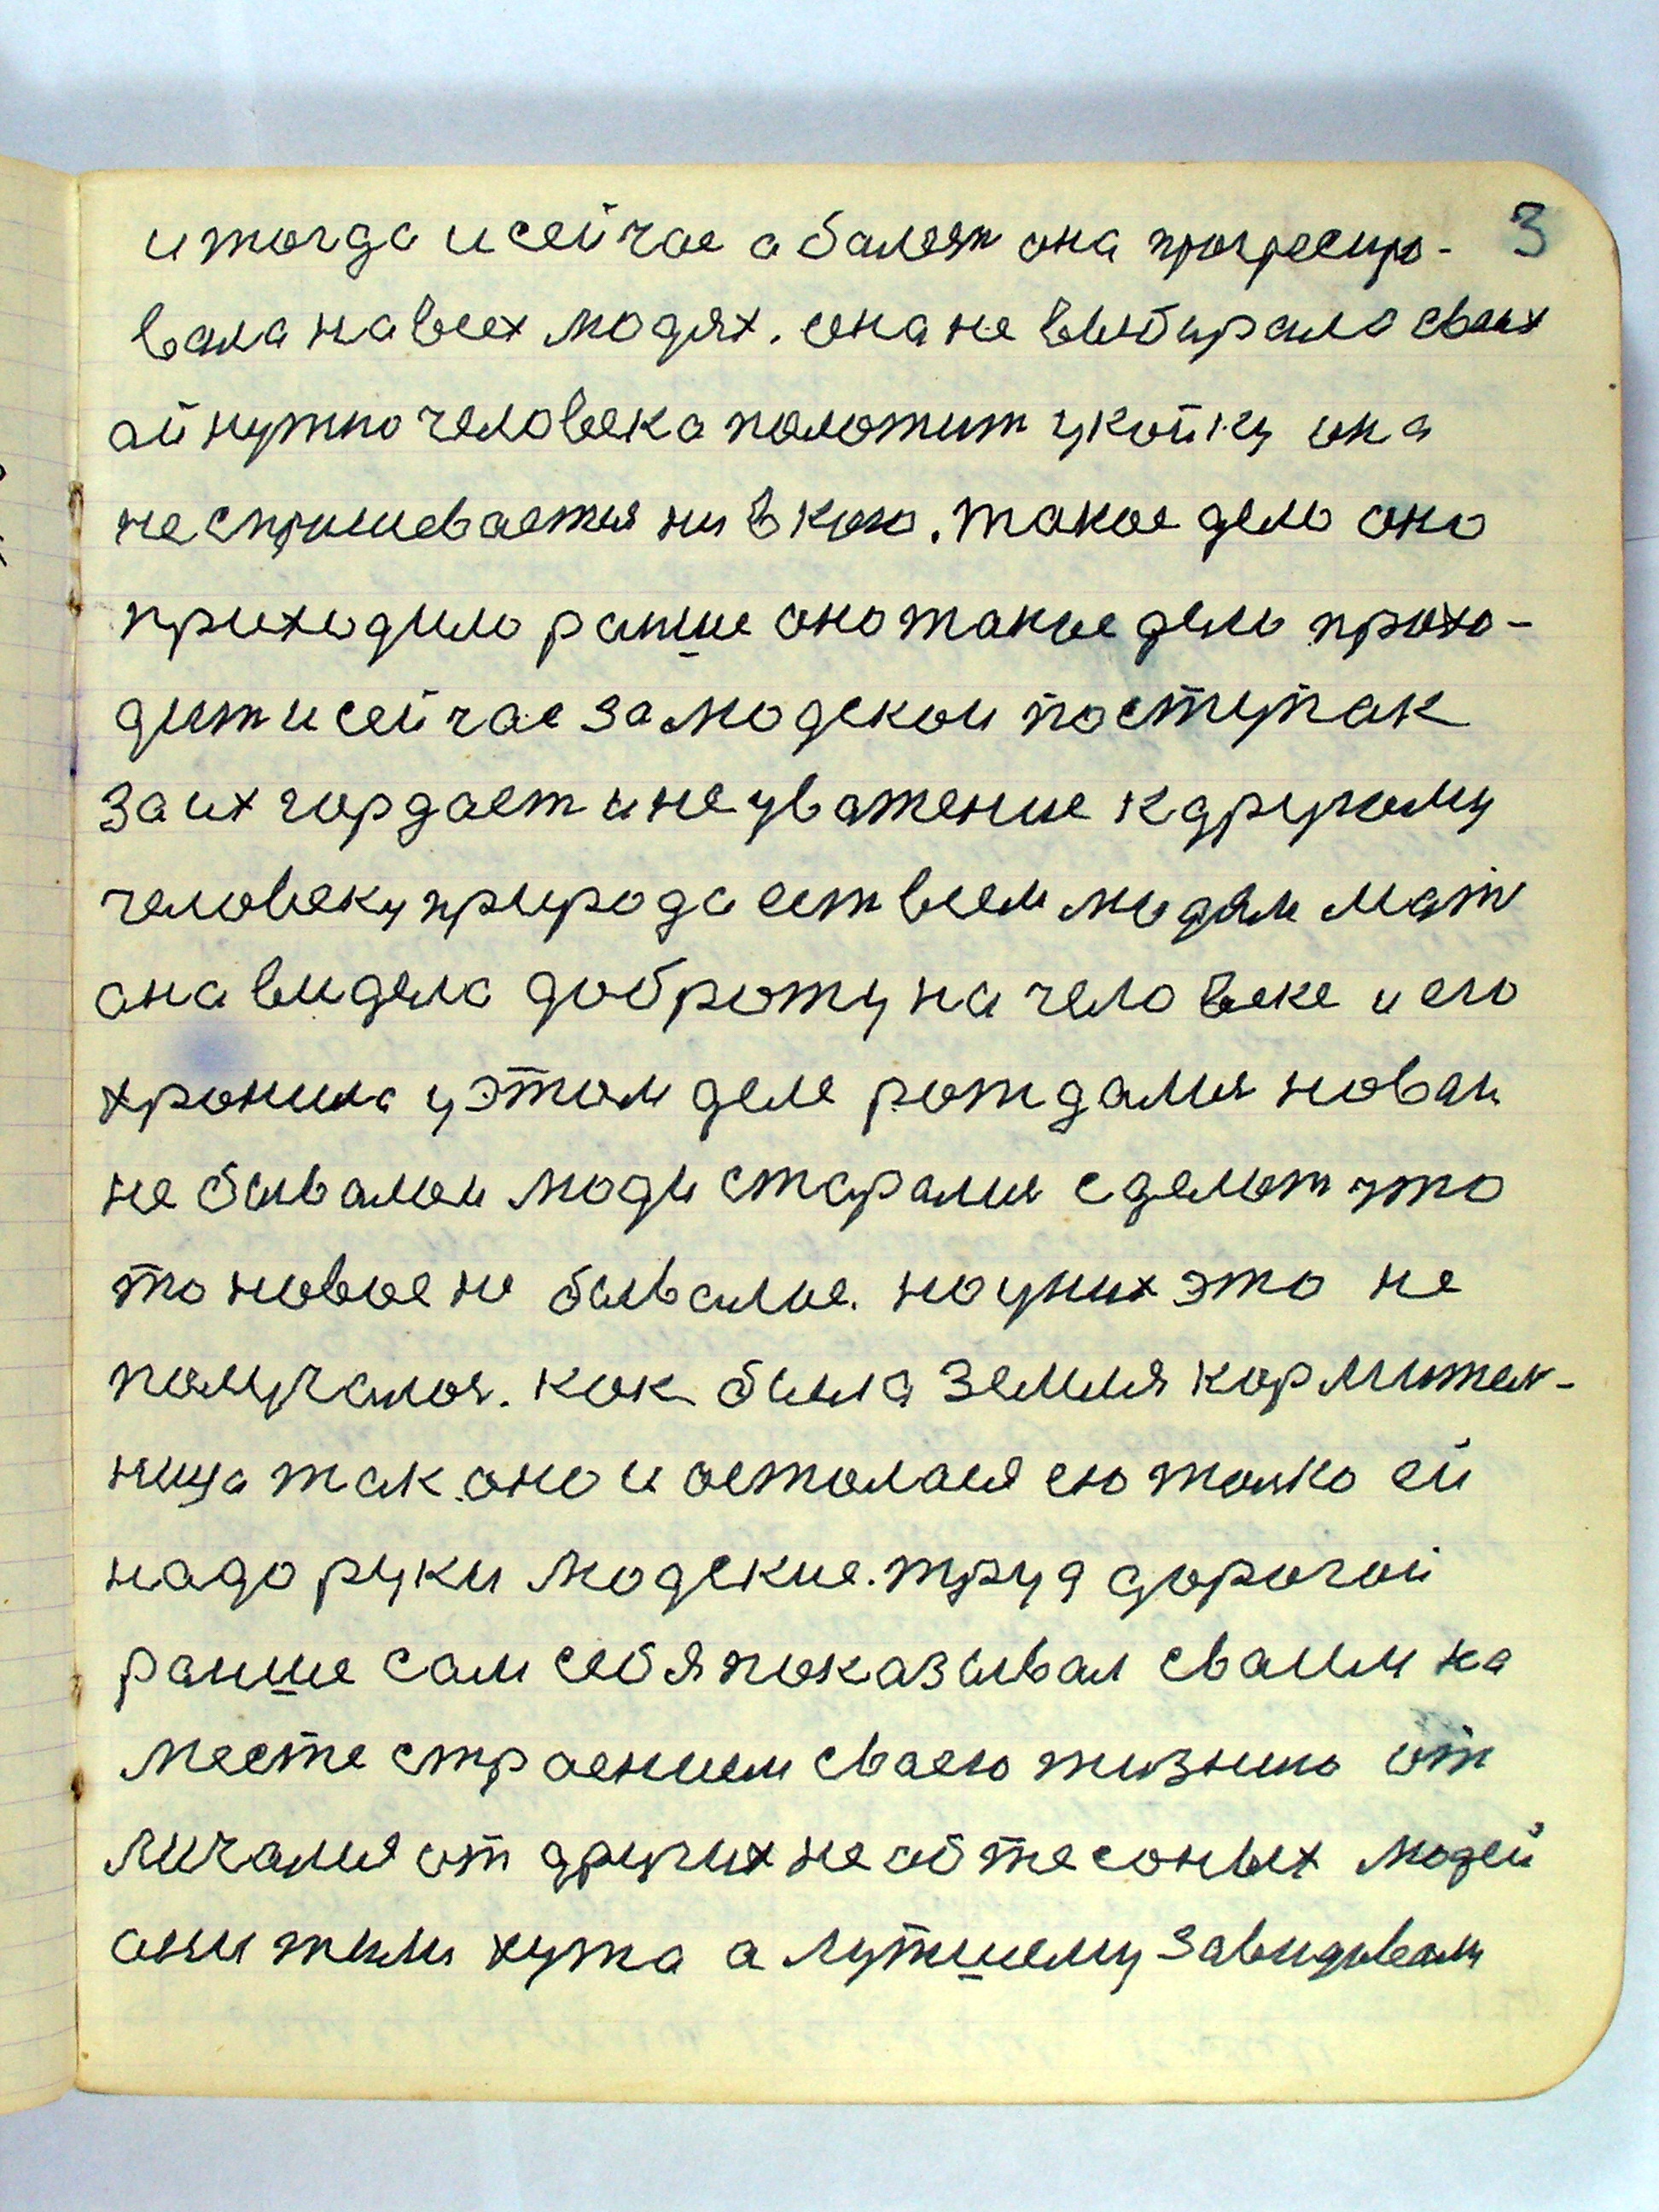 3
и тогда и сейчас а балезн она прогресиро-
вала на всех людях. она не выбирала своих
ай нужно человека положит у койку она
не спрашевается ни в кого. такое дело оно
приходило раньше оно такое дело прохо-
дит и сейчас за людской поступак
за их гордаст и не уважение к другому
человеку природа ест всем людям мать
она видела доброту на человеке и его
хронила у этом деле рождался новай
не бывалой люди старалис сделат што
то новое не бывалое. но у них это не
получалос. как была земля кормител-
ница так оно и осталася ею толко ей
надо руки людские. труд дорогой
раньше сам себя показывал сваим на
месте страением сваею жизнию от
личался от других не обтесоных людей
они жили хужа а лутшему завидывали